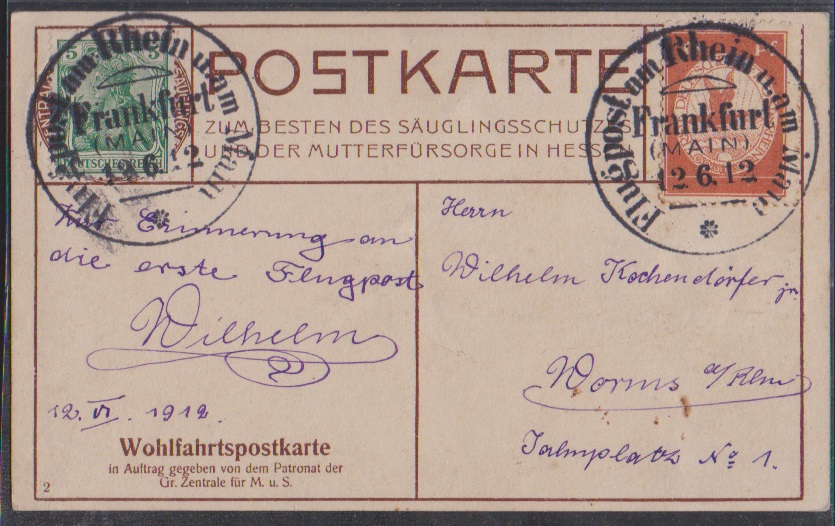 POSTKARTE
ZUM BESTEN DES SÄUGLINGSSCHUTZES
UND DER MUTTERFÜRSORGE IN HESSEN
5
DEUTSCHES REICH
Flugpost am Rhein u. am Main
Frankfurt
(MAIN)
12.6.12
Flugpost am Rhein u. am Main
Frankfurt
(MAIN)
12.6.12
Zur Erinnerung an
die erste Flugpost
Wilhelm
12. VI. 1912.
Wohlfahrtspostkarte
in Auftrag gegeben von dem Patronat der
Gr. Zentrale für M. u. S.
2
Herrn
Wilhelm Kochendörfer jr.
Worms a/Rhn
No 1.